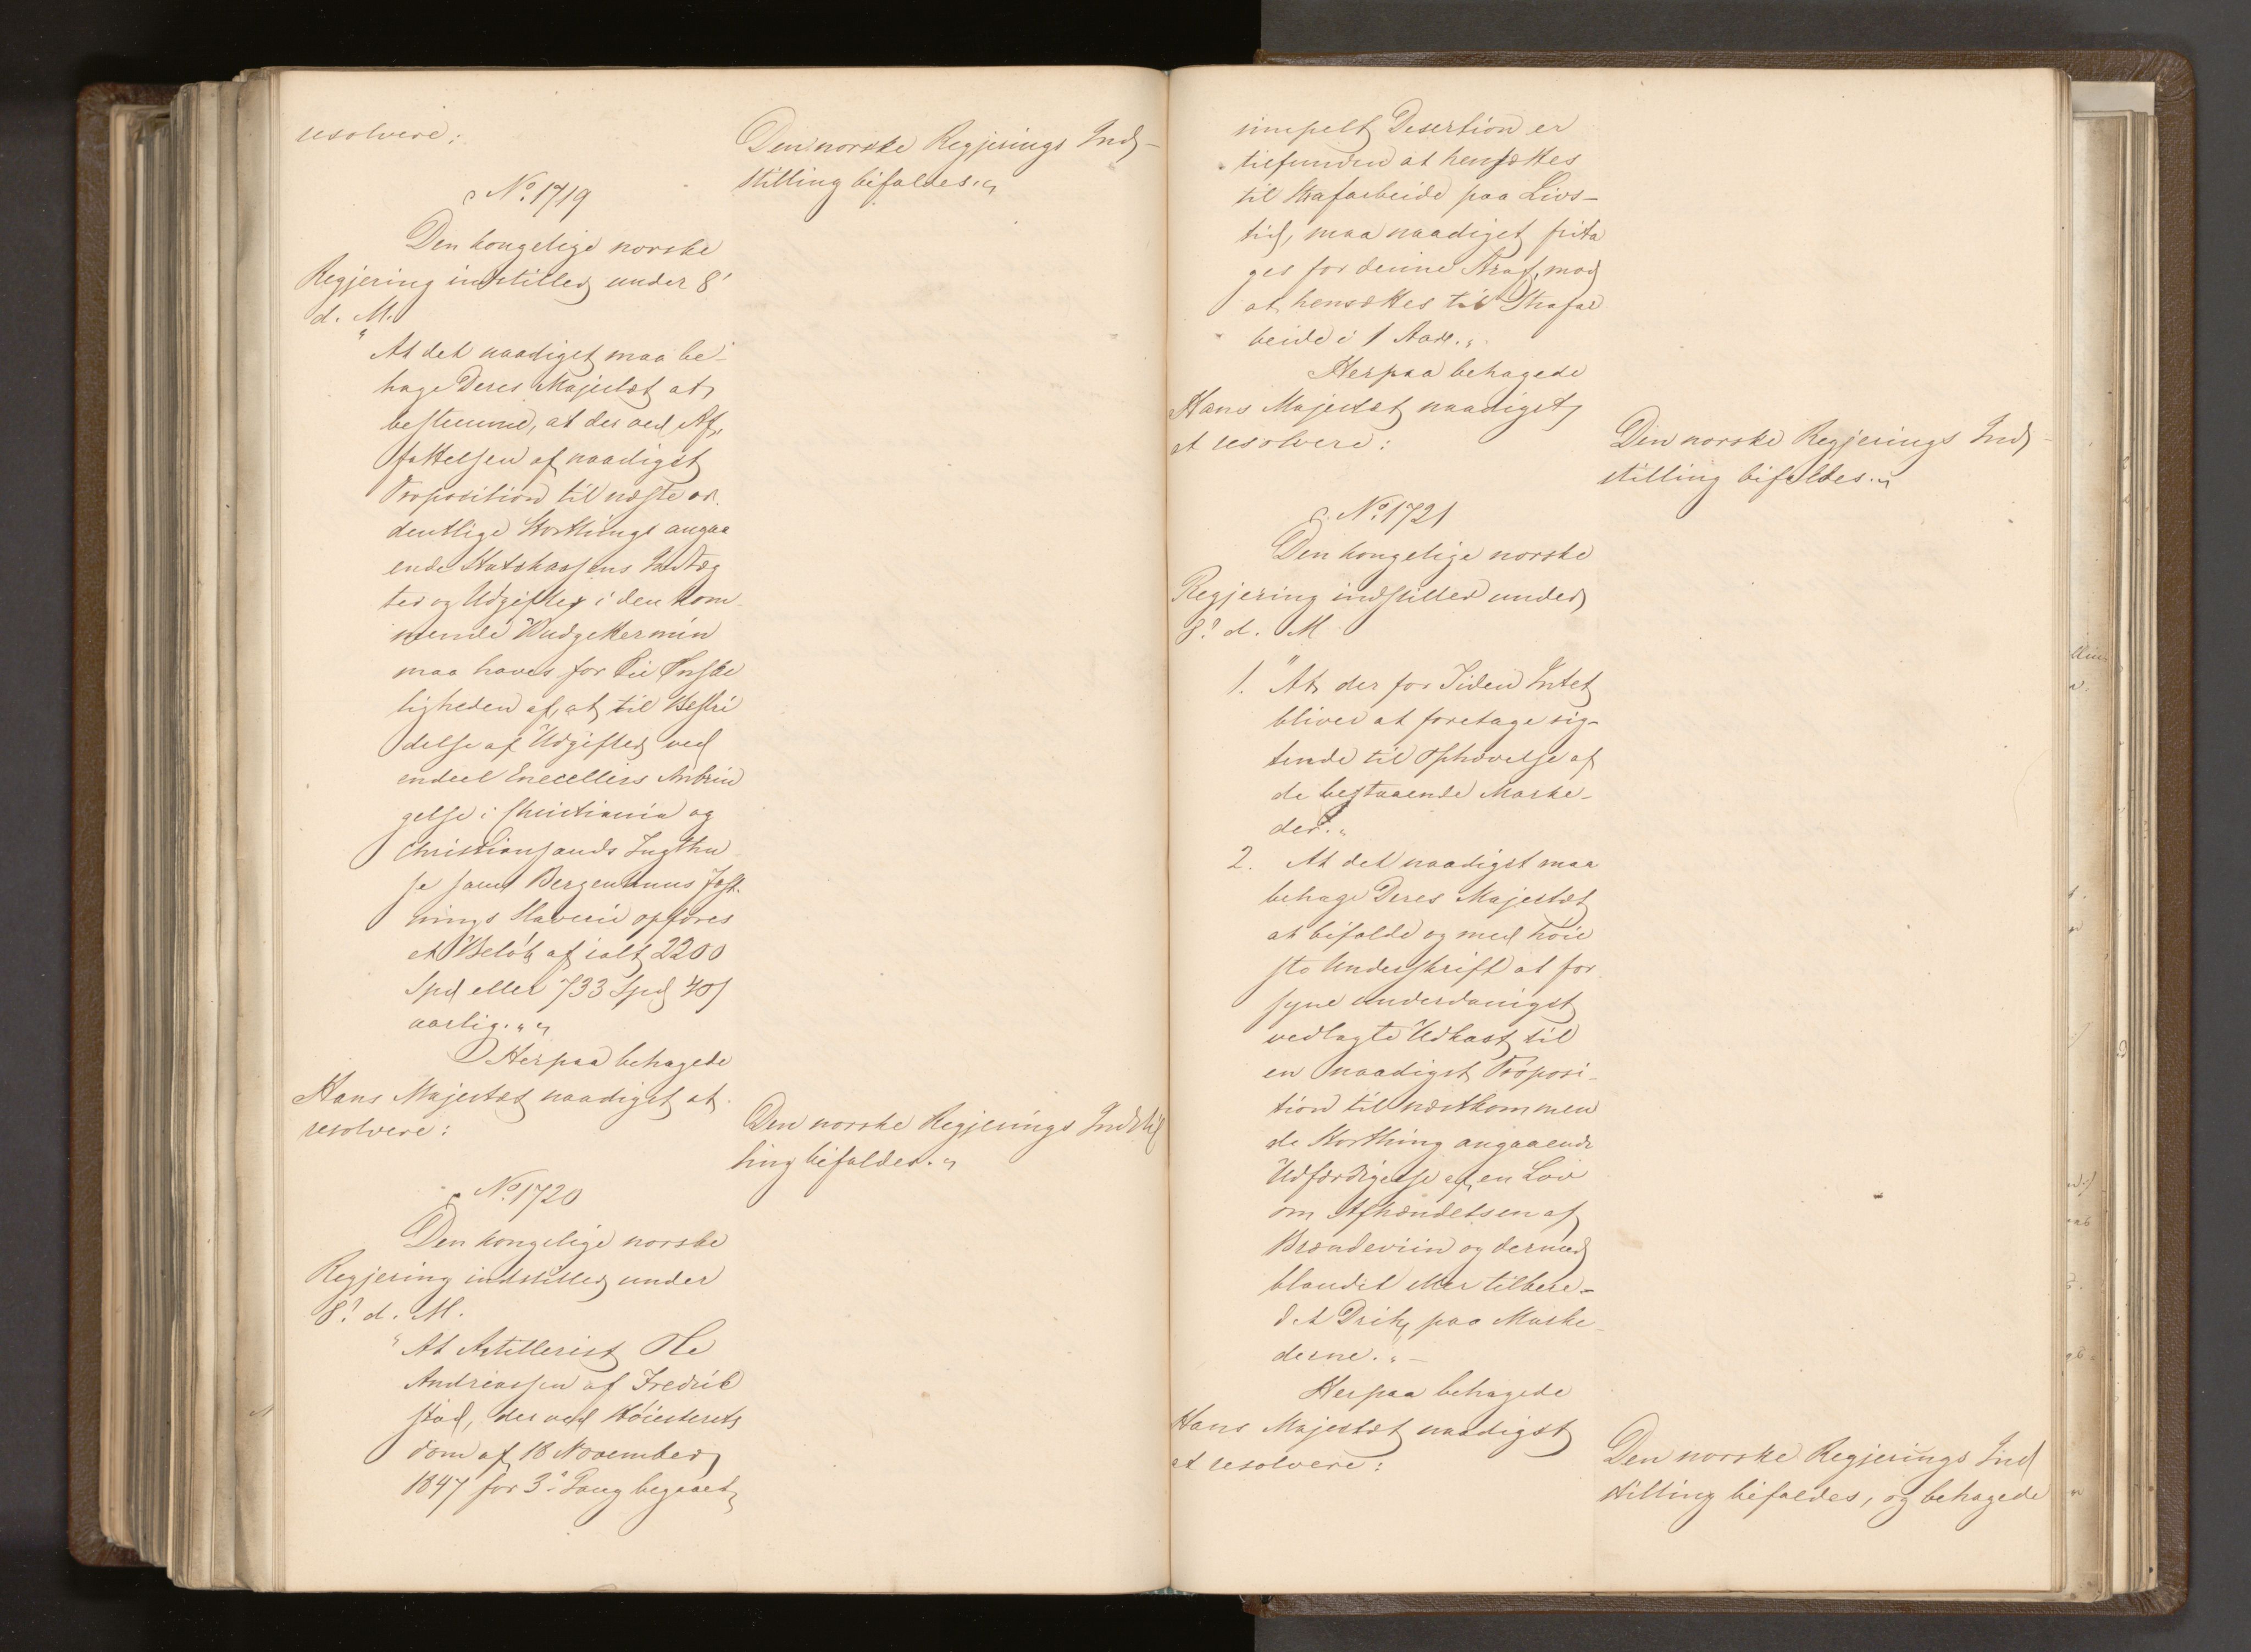 resolvere:
Den norske Regjerings Ind-
stilling bifaldes.„
No. 1719
Den kongelige norske
Regjering indstiller under 8'
d. M.
"At det naadigst maa be-
hage Deres Majestæt at
bestemme, at der ved Af-
fattelsen af naadigst
Proposition til næste or-
dentlige Storthings angaa
ende Statskassens Indtæg
ter og Udgifter i den kom-
mende Budgettermin
maa haves for Øie Ønske
ligheden af, at til Bestri
delse af Udgifter ved
endeel Enecellers Anbrin
gelse i Christiania og
Christiansands Tugthu
se samt Bergenhuus Fæst-
nings Slaverie opføres
et Beløb af ialt 2200
Spd eller 733 Spd 40 s
aarlig.„„
Herpaa behagede
Hans Majestæt naadigst at
resolvere:
Den norske Regjerings Indstil
ling bifaldes.„
No. 1720
Den kongelige norske
Regjering indstiller under
8! d. M.
"At Artillerist Ole
Andreassen af Fredrik
stad, der ved Høiesterets
dom af 18 November
1847 for 3. Gang begaaet
simpelt Desertion er
tilfunden at hensættes
til Strafarbeide paa Livs-
tid, maa naadigst frita
ges for denne Straf, mod
at hensættes til Strafar
beide i 1 Aar.„
Herpaa behagede
Hans Majestæt naadigst
at resolvere:
Den norske Regjerings Ind-
stilling bifaldes.„
No. 1721
Den kongelige norske
Regjering indstiller under
8! d. M
1. "At der for Tiden Intet
bliver at foretage sig-
tende til Ophævelse af
de bestaaende Marke-
der.„
2. At det naadigst maa
behage Deres Majestæt
at bifalde og med høie
ste Underskrift at for
syne underdanigst
vedlagte Udkast til
en naadigst Proposi-
tion til næstkommen
de Storthing angaaende
Udfærdigelse af en Lov
om Afhændelsen af
Brændeviin og dermed
blandet eller tilbere-
det Drik paa Marke-
derne.„ —
Herpaa behagede
Hans Majestæt naadigst
at resolvere:
Den norske Regjerings Ind
stilling bifaldes, og behagede